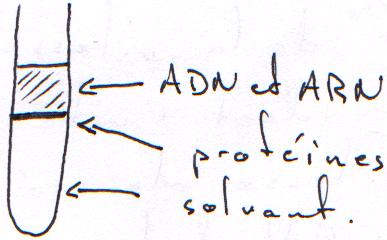 ADN et ARN
protéines
solvant.